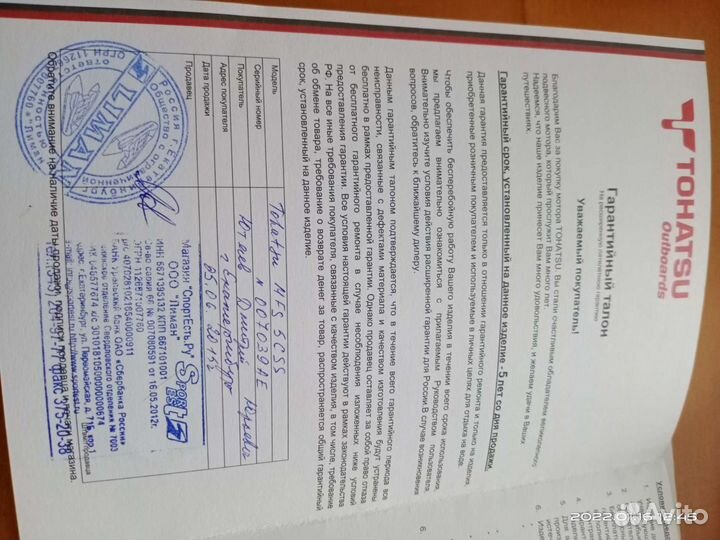 TOHATSU
Outboards
Гарантийный талон
На расширенную пятилетнюю гарантию
Уважаемый покупатель!
Благодарим Вас за покупку мотора TOHATSU. Вы стали счастливым обладателем великолепного
подвесного мотора, который прослужит Вам много лет.
Надеемся, что наше изделие принесет Вам много удовольствия, и желаем удачи в Ваших
путешествиях.
Гарантийный срок, установленный на данное изделие - 5 лет со дня продажи
Данная гарантия предоставляется только в отношении гарантийного ремонта и только на изделия,
приобретенные розничным покупателем и используемые в личных целях для отдыха на воде.
Чтобы обеспечить бесперебойную работу Вашего изделия в течении всего срока использования,
мы предлагаем внимательно ознакомиться с прилагаемым Руководством пользователя.
Внимательно изучите условия действия расширенной гарантии для России. В случае возникновения
вопросов, обратитесь к ближайшему дилеру.
Данным гарантийным талоном подтверждается, что в течение всего гарантийного периода все
неисправности, связанные с дефектами материала и качеством изготовления будут устранены
бесплатно в рамках предоставленной гарантии. Однако продавец оставляет за собой право отказа
от бесплатного гарантийного ремонта в случае несоблюдения изложенных ниже условий
предоставления гарантии. Все условия настоящей гарантии действуют в рамках законодательства
РФ. На все иные требования покупателя, связанные с качеством изделия, в том числе, требование
об обмене товара, требование о возврате денег за товар, распространяется общий гарантийный
срок, установленный на данное изделие.
Модель Tohatsu MFS 5CSS
Серийный номер № 007039AE
Покупатель Дмитрий
Адрес покупателя г Екатеринбург
Дата продажи 25.06.2015г
Продавец
Магазин "СпортЕсть.Ру"
ООО "Лиман"
Sport Est
ИНН 6671395132 КПП 667101001
от 16.05.2012г.
ОГРН 1126671007769
Банк ОАО «Сбербанка России»
отделение Свердловского отделения № 7003
БИК 046577674 к/с 30101810500000000674
адрес: г.Екатеринбург, ул. Первомайская, д. 71Б,
факс 375-20-38
Россия г.Екатеринбург
LIMAN
Обратите внимание на наличие даты продажи, подписи продавца и печати магазина.
Avito
2022.01.16 12:45